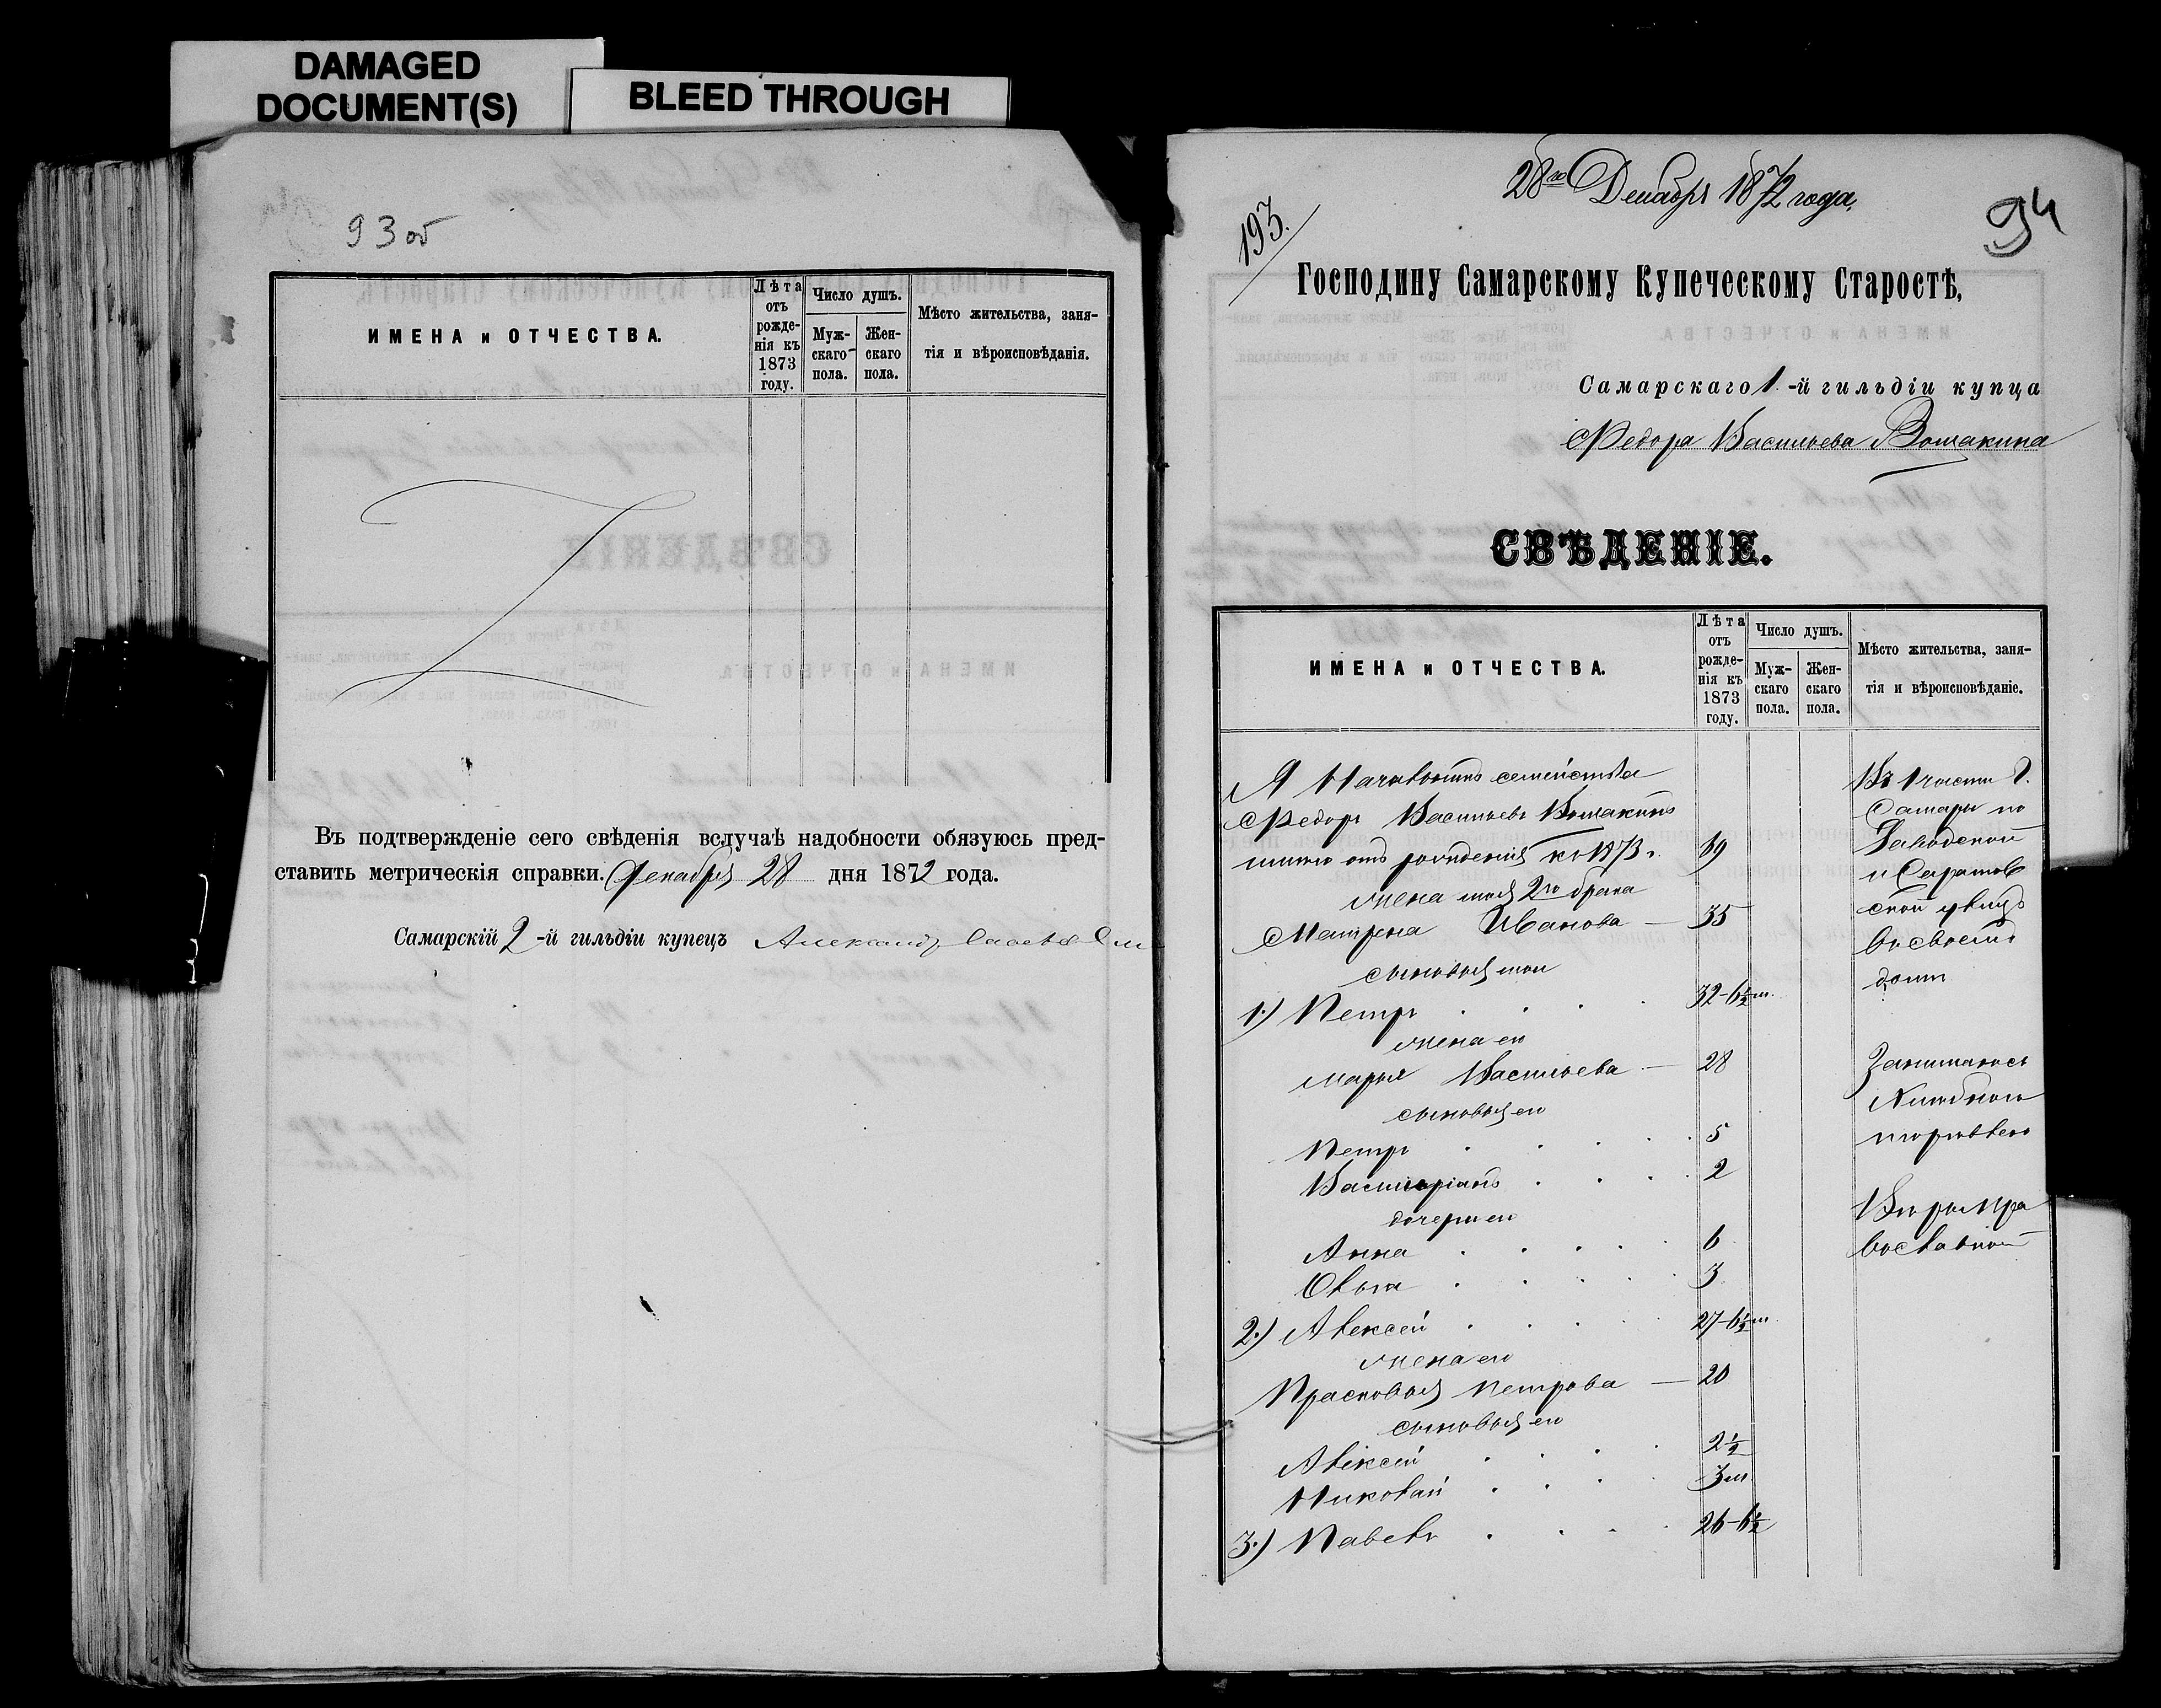 DAMAGED
DOCUMENT(S)
BLEED THROUGH
93 об
ИМЕНА и ОТЧЕСТВА.
Лѣта
отъ
рожде-
нія къ
1873
году.
Число душъ.
Муж-
скаго
пола.
Жен-
скаго
пола.
Мѣсто жительства, заня-
тія и вѣроисповѣданія.
Въ подтвержденіе сего свѣденія вслучаѣ надобности обязуюсь пред-
ставить метрическія справки. Декабря 28 дня 1872 года.
Самарскій 2-й гильдіи купецъ Александр
28го Декабря 1872 года.
193.
94
Господину Самарскому Купеческому Старостѣ,
Самарскаго 1-й гильдіи купца
Федора Васильева Вощакина
СВѢДЕНІЕ.
ИМЕНА и ОТЧЕСТВА.
Лѣта
отъ
рожде-
нія къ
1873
году.
Число душъ.
Муж-
скаго
пола.
Жен-
скаго
пола.
Мѣсто жительства, заня-
тія и вѣроисповѣданіе.
Я Начальникъ семейства
Федоръ Васильевъ Вощакинъ
имѣю отъ рожденія къ 1873 г. 69
жена моя 2го брака
Матрена Иванова — 35
сыновья мои
1.) Петръ 32-6½ м.
жена его
Марья Васильева — 28
сыновья его
Петръ 5
2
дочери его
Анна 6
Ольга 3
2.) Алексѣй 27-6½ м.
жена его
Прасковья Петрова — 20
сыновья его
Алексѣй 2½
Николай 3 м.
3.) Павелъ 26-6½
Въ 1 части г.
Самары по
Заводской
и Саратов
ской улицѣ
во своемъ
доми
Занимаюсь
Хлѣбною
торговлею
Вѣры пра
вославной